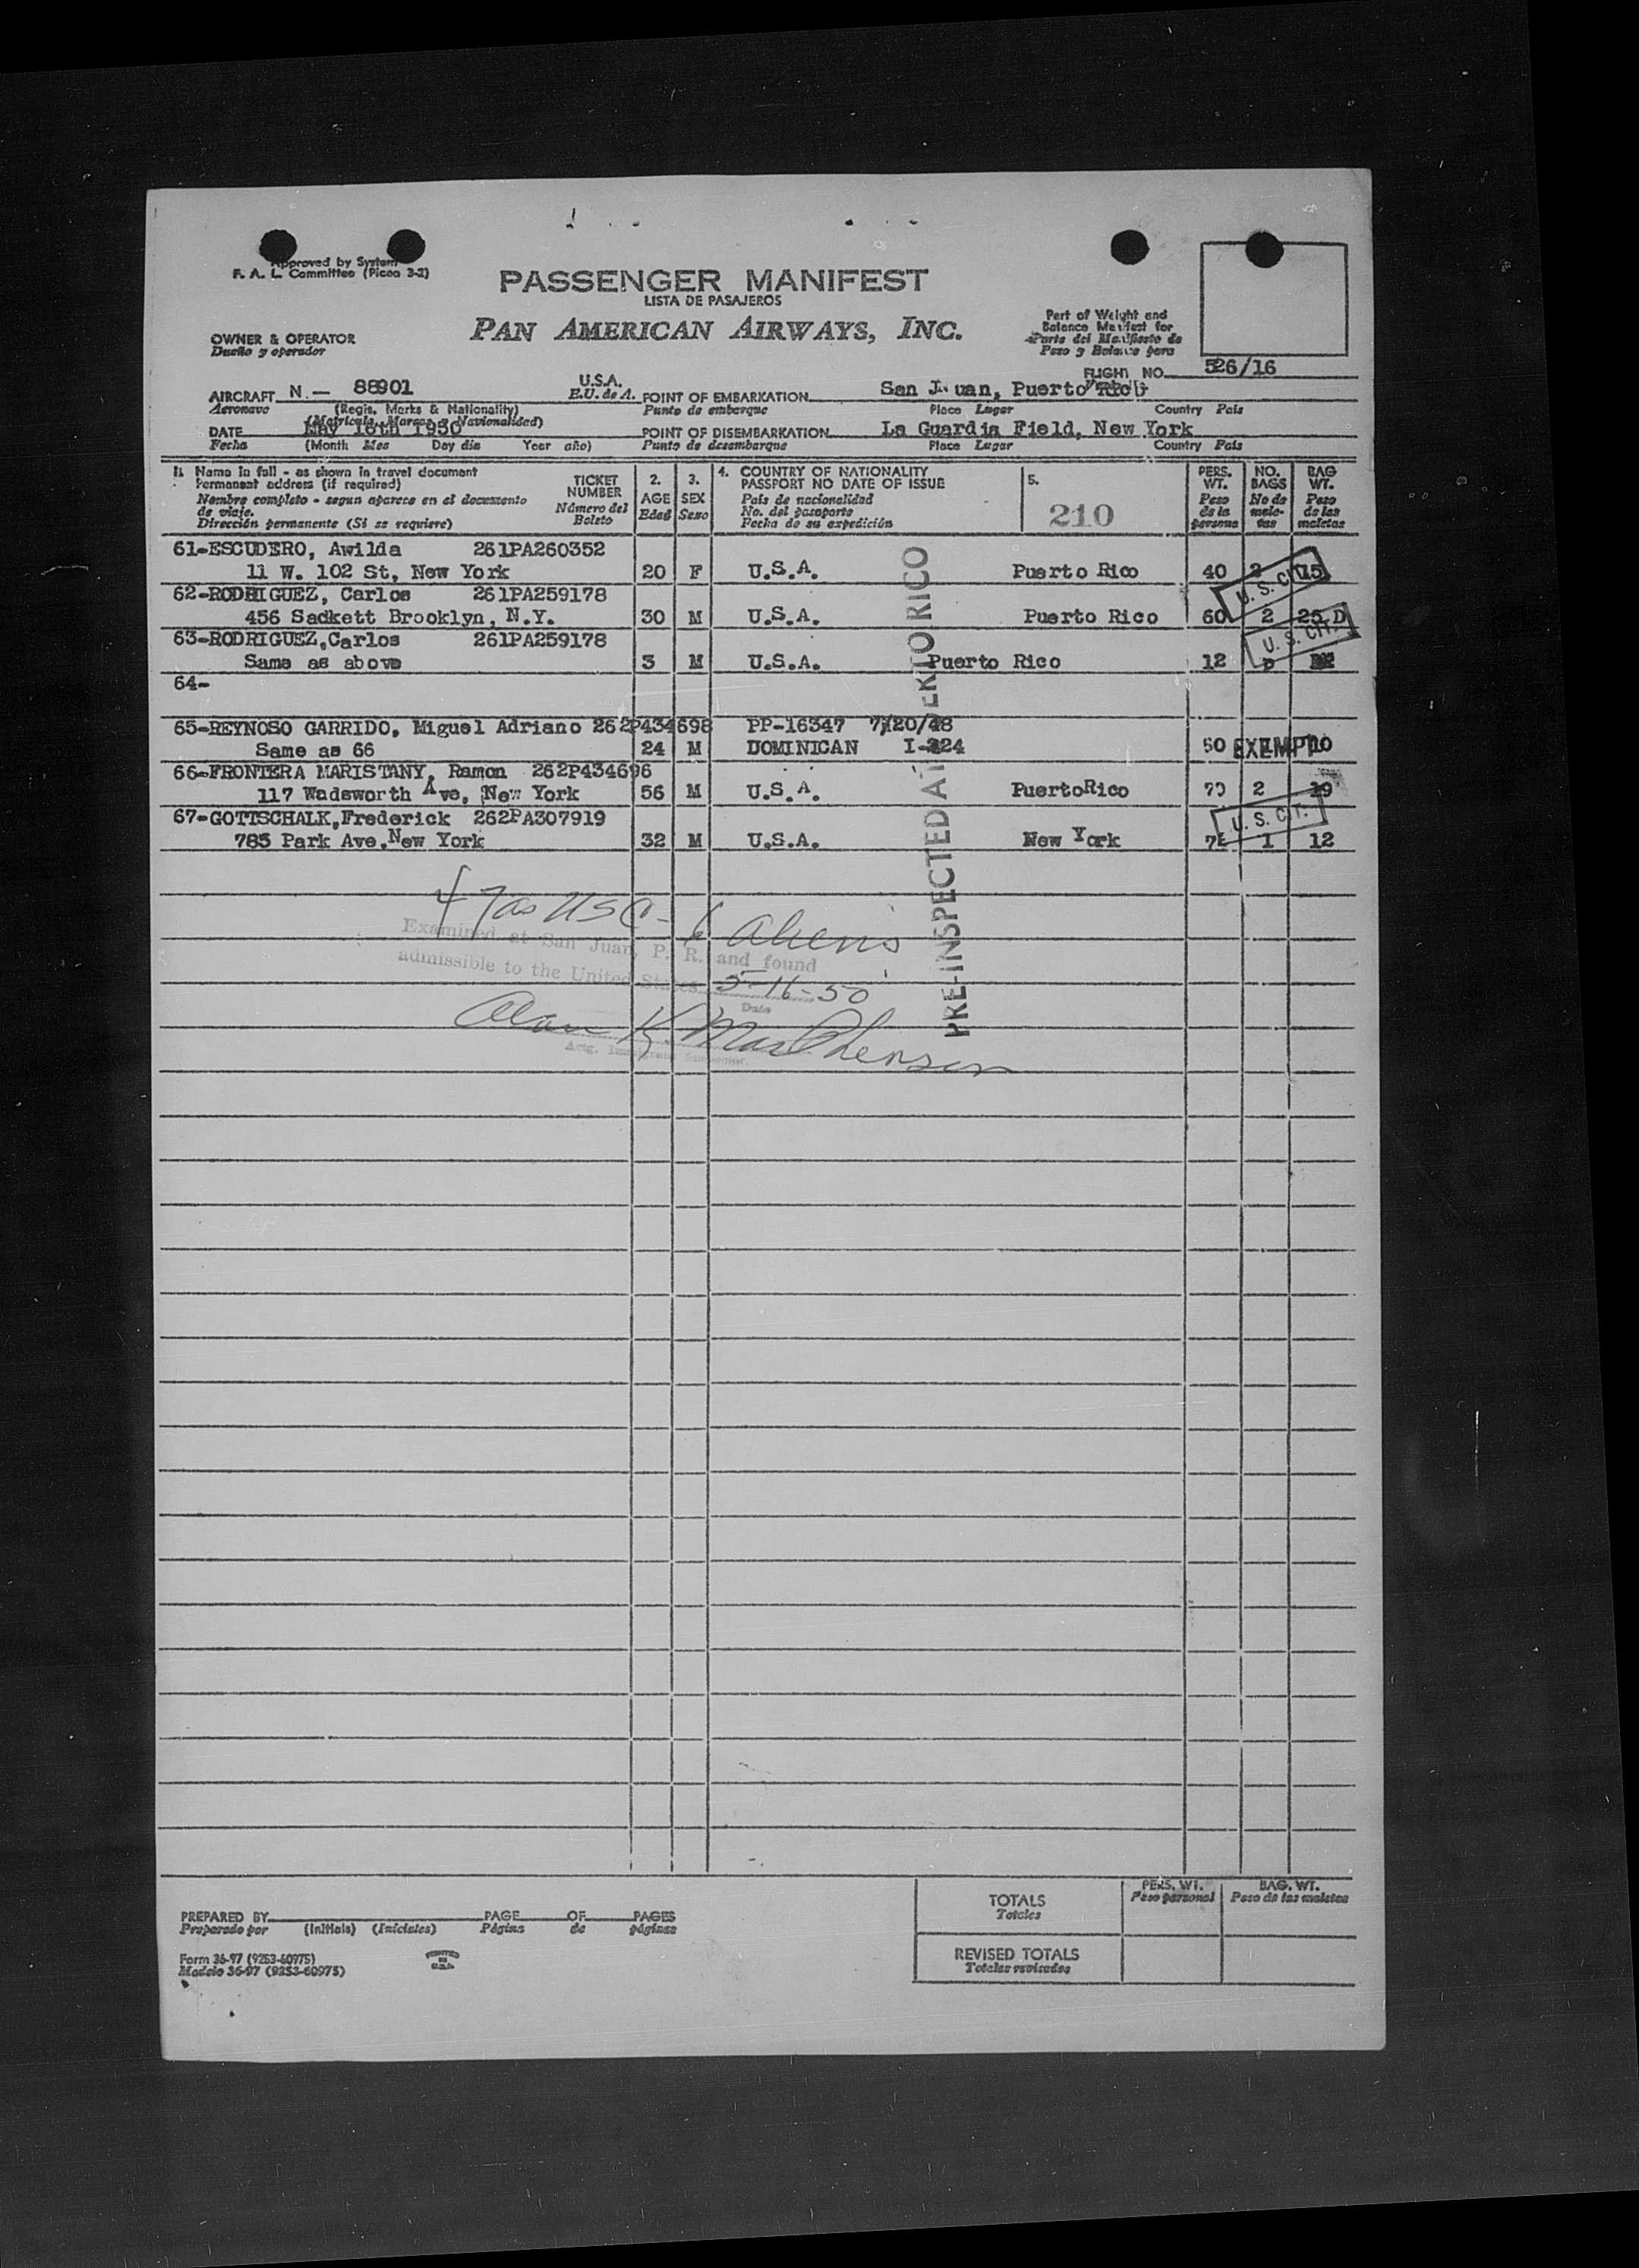 Approved by System
F. A. L. Committee (Picao 3-2)
PASSENGER MANIFEST
LISTA DE PASAJEROS
PAN AMERICAN AIRWAYS, INC.
Part of Weight and
Balance Manifest for
Parte del Manifiesto de
Peso y Balance para
OWNER & OPERATOR
Dueño y operador
FLIGHT NO. 526/16
AIRCRAFT N.- 88901 U.S.A.
E.U. de A. POINT OF EMBARKATION San Juan, Puerto Rico
Aeronave (Regis, Marks & Nationality) Punto de embarque Place Lugar Country País
(Matrícula, Marcas y Nacionalidad)
DATE May 16th 1950 POINT OF DISEMBARKATION La Guardia Field, New York
Fecha (Month Mes Day día Year año) Punto de desembarque Place Lugar Country País
1. Name in full - as shown in travel document
Permanent address (if required)
Nombre completo - segun aparece en el documento
de viaje.
Dirección permanente (Si se requiere)
TICKET
NUMBER
Número del
Boleto
2.
AGE
Edad
3.
SEX
Sexo
4. COUNTRY OF NATIONALITY
PASSPORT NO DATE OF ISSUE
País de nacionalidad
No. del pasaporte
Fecha de su expedición
5.
210
PERS.
WT.
Peso
de la
persona
NO.
BAGS
No de
male-
tas
BAG
WT.
Peso
de las
maletas
61-ESCUDERO, Awilda 261PA260352
11 W. 102 St, New York 20 F U.S.A. Puerto Rico 40 15
U. S. CIT.
62-RODRIGUEZ, Carlos 261PA259178
456 Sadkett Brooklyn, N.Y. 30 M U.S.A. Puerto Rico 60 2 25 D
U. S. CIT.
63-RODRIGUEZ,Carlos 261PA259178
Same as above 3 M U.S.A. Puerto Rico 12
64-
65-REYNOSO GARRIDO, Miguel Adriano 262P434698 PP-16347 7/20/48
Same as 66 24 M DOMINICAN I-224 50 EXEMPT 10
66-FRONTERA MARISTANY, Ramon 262P434696
117 Wadsworth Ave, New York 56 M U.S.A. PuertoRico 70 2 19
U. S. CIT.
67-GOTTSCHALK,Frederick 262PA307919
785 Park Ave.New York 32 M U.S.A. New York 1 12
PRE-INSPECTED AT PUERTO RICO
47 as USC - 6 Aliens
Examined at San Juan, P. R. and found
admissible to the United States. 5-16-50
Date
Alan K.
Actg. Immigrant Inspector.
PREPARED BY PAGE OF PAGES
Preparado por (Initials) (Iniciales) Página de páginas
Form 36-97 (9253-60975)
Modelo 36-97 (9253-60975)
PRINTED
IN
U.S.A.
PERS. WT.
Peso personal
BAG. WT.
Peso de las maletas
TOTALS
Totales
REVISED TOTALS
Totales revisados